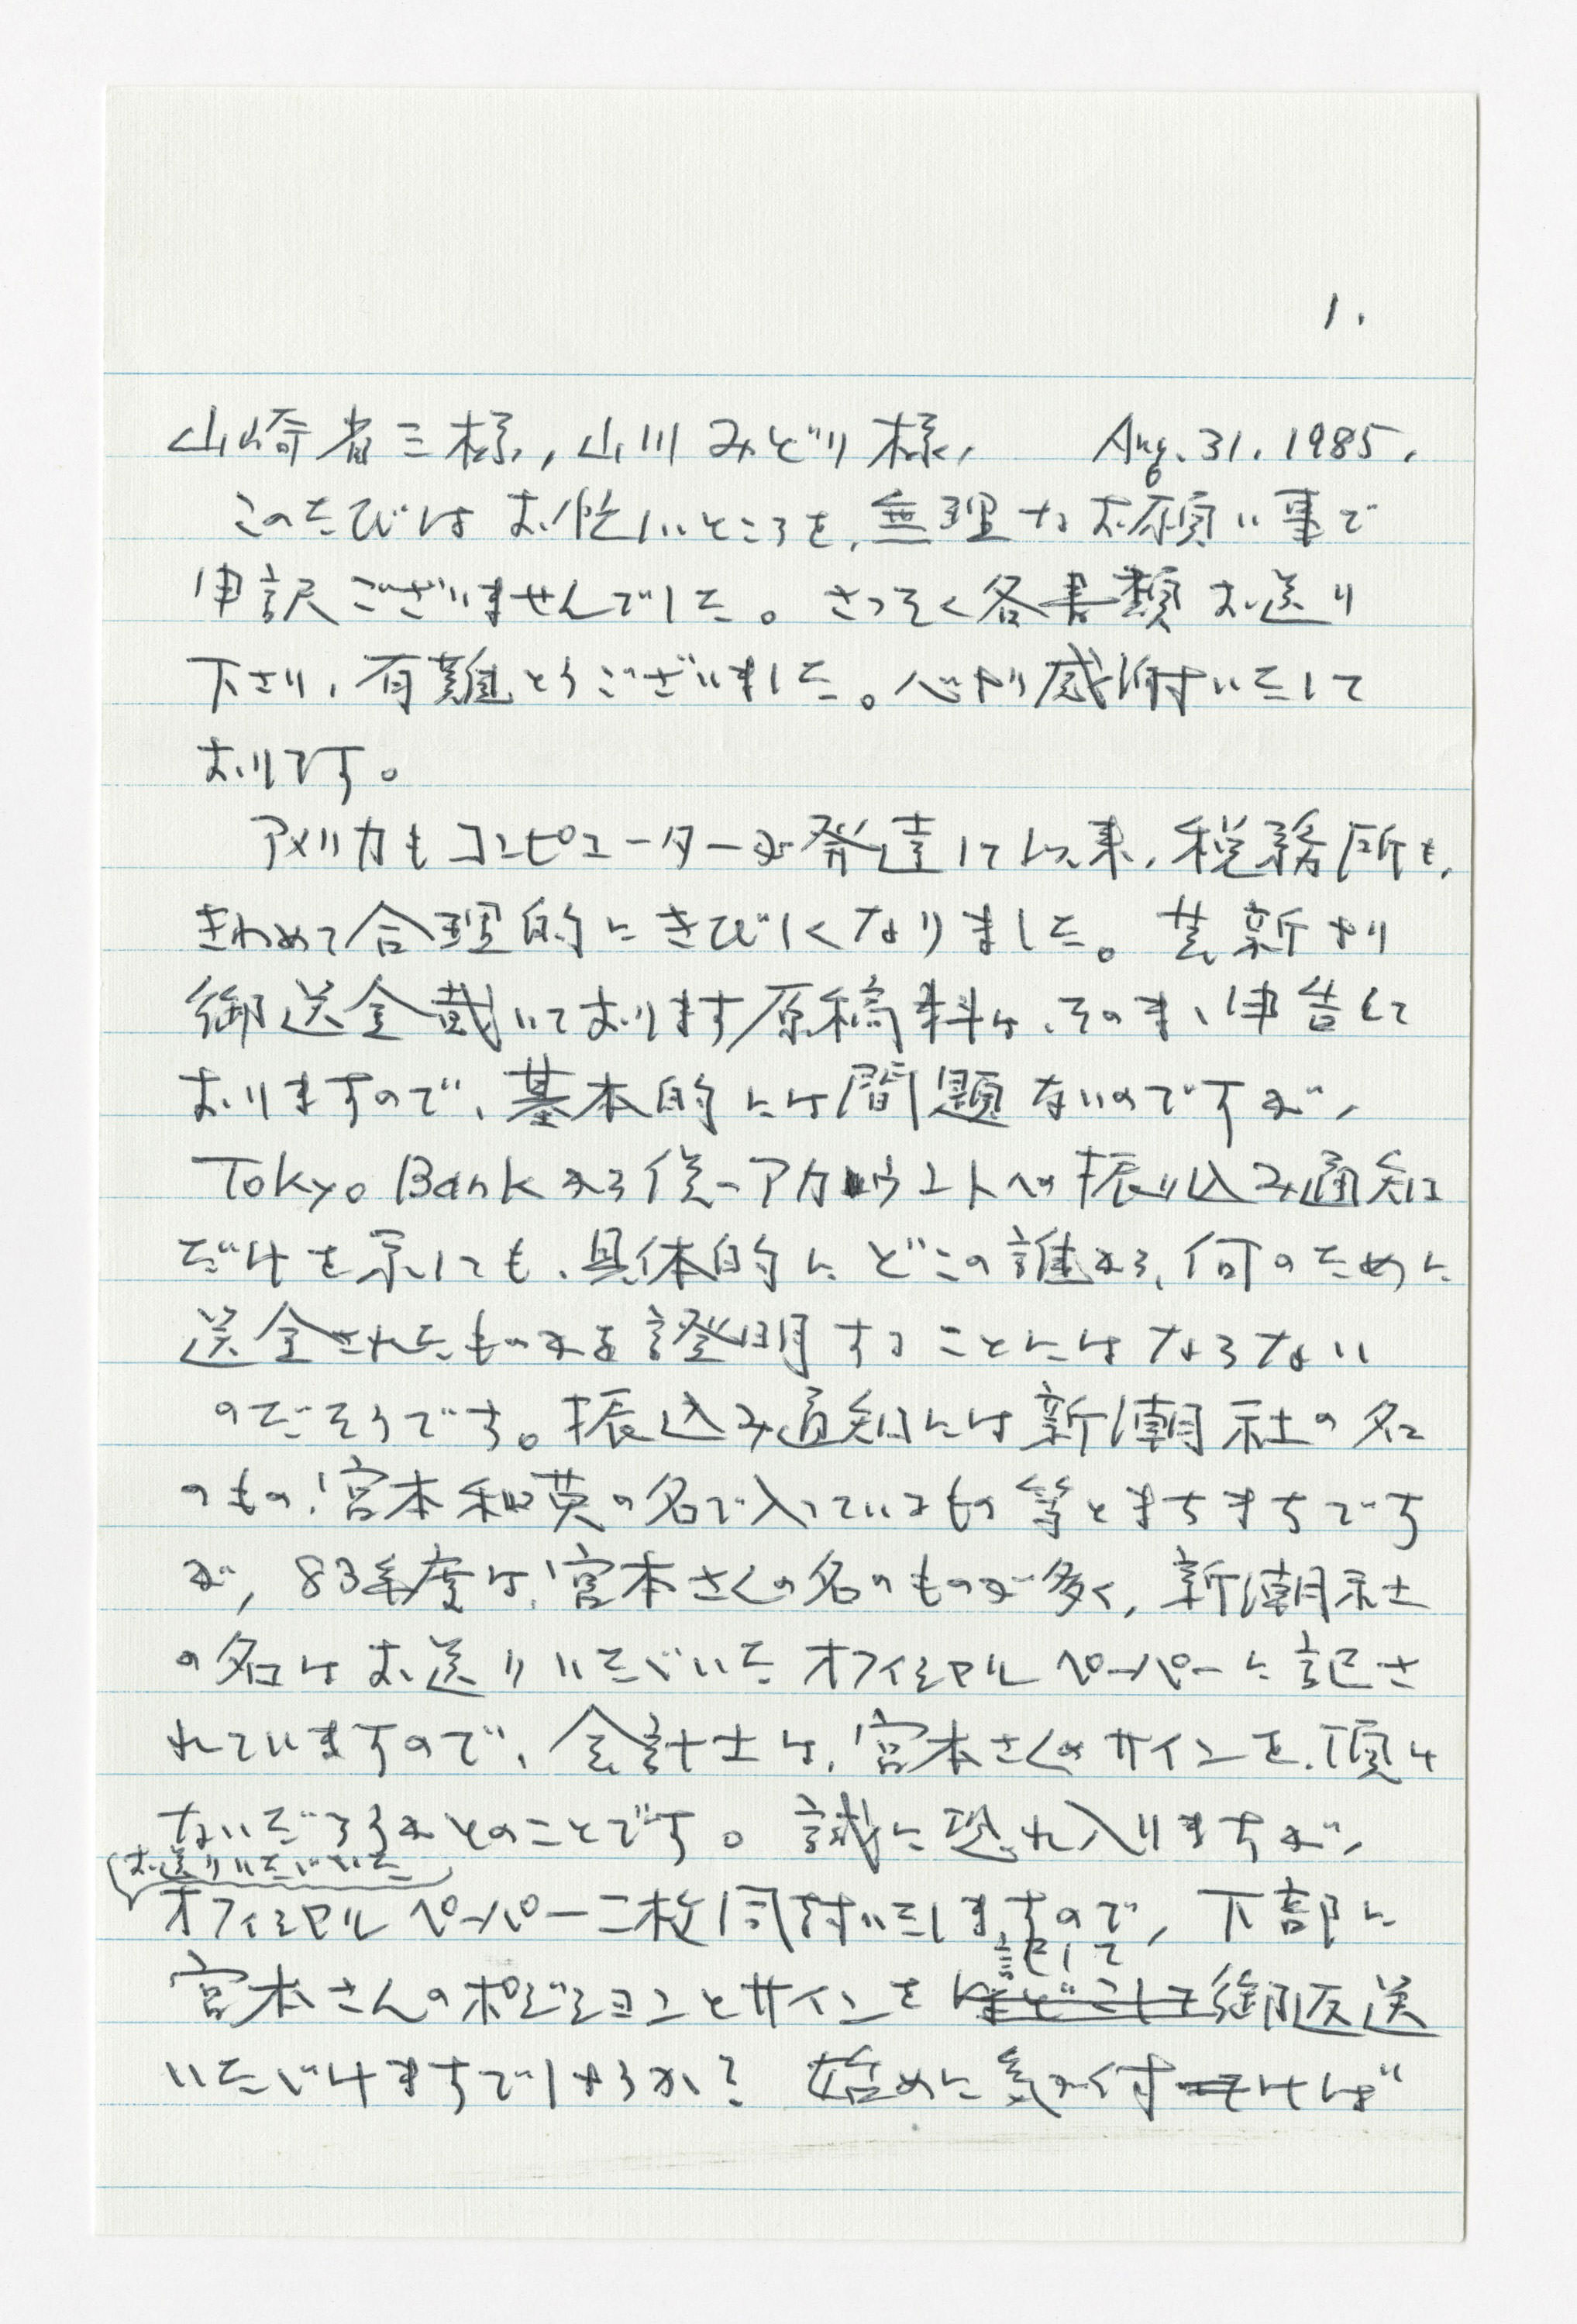 1.
山崎省三様,山川みどり様, Aug. 31. 1985.
このたびはお忙しいところを,無理なお願い事で
申訳ございませんでした。さっそく各書類お送り
下さり、有難とうございました。心より感謝いたして
おりです。
アメリカもコンピューターが発達して以来,税務所も,
きわめて合理的にきびしくなりました。芸新より
御送金戴いております原稿料は、そのまゝ申告して
おりますので、基本的には問題ないのですが,
Tokyo Bankから僕のアカウントへの振り込み通知
だけを示しても、具体的にどこの誰から,何のために
送金されたものかを證明することにはならない
のだそうです。振込み通知には新潮社の名
のもの、宮本和英の名で入っているもの等とまちまちです
が, 83年度は、宮本さんの名のものが多く, 新潮社
の名はお送りいただいたオフィシャルペーパーに記さ
れていますので、会計士は、宮本さんのサインを、頂け
ないだろうかとのことです。誠に恐れ入りますが,
お送りいただいた
オフィシャルペーパー二枚同封いたしますので, 下部に
記して
宮本さんのポジションとサインを御返送
いただけますでしょうか? 始めに気が付けば